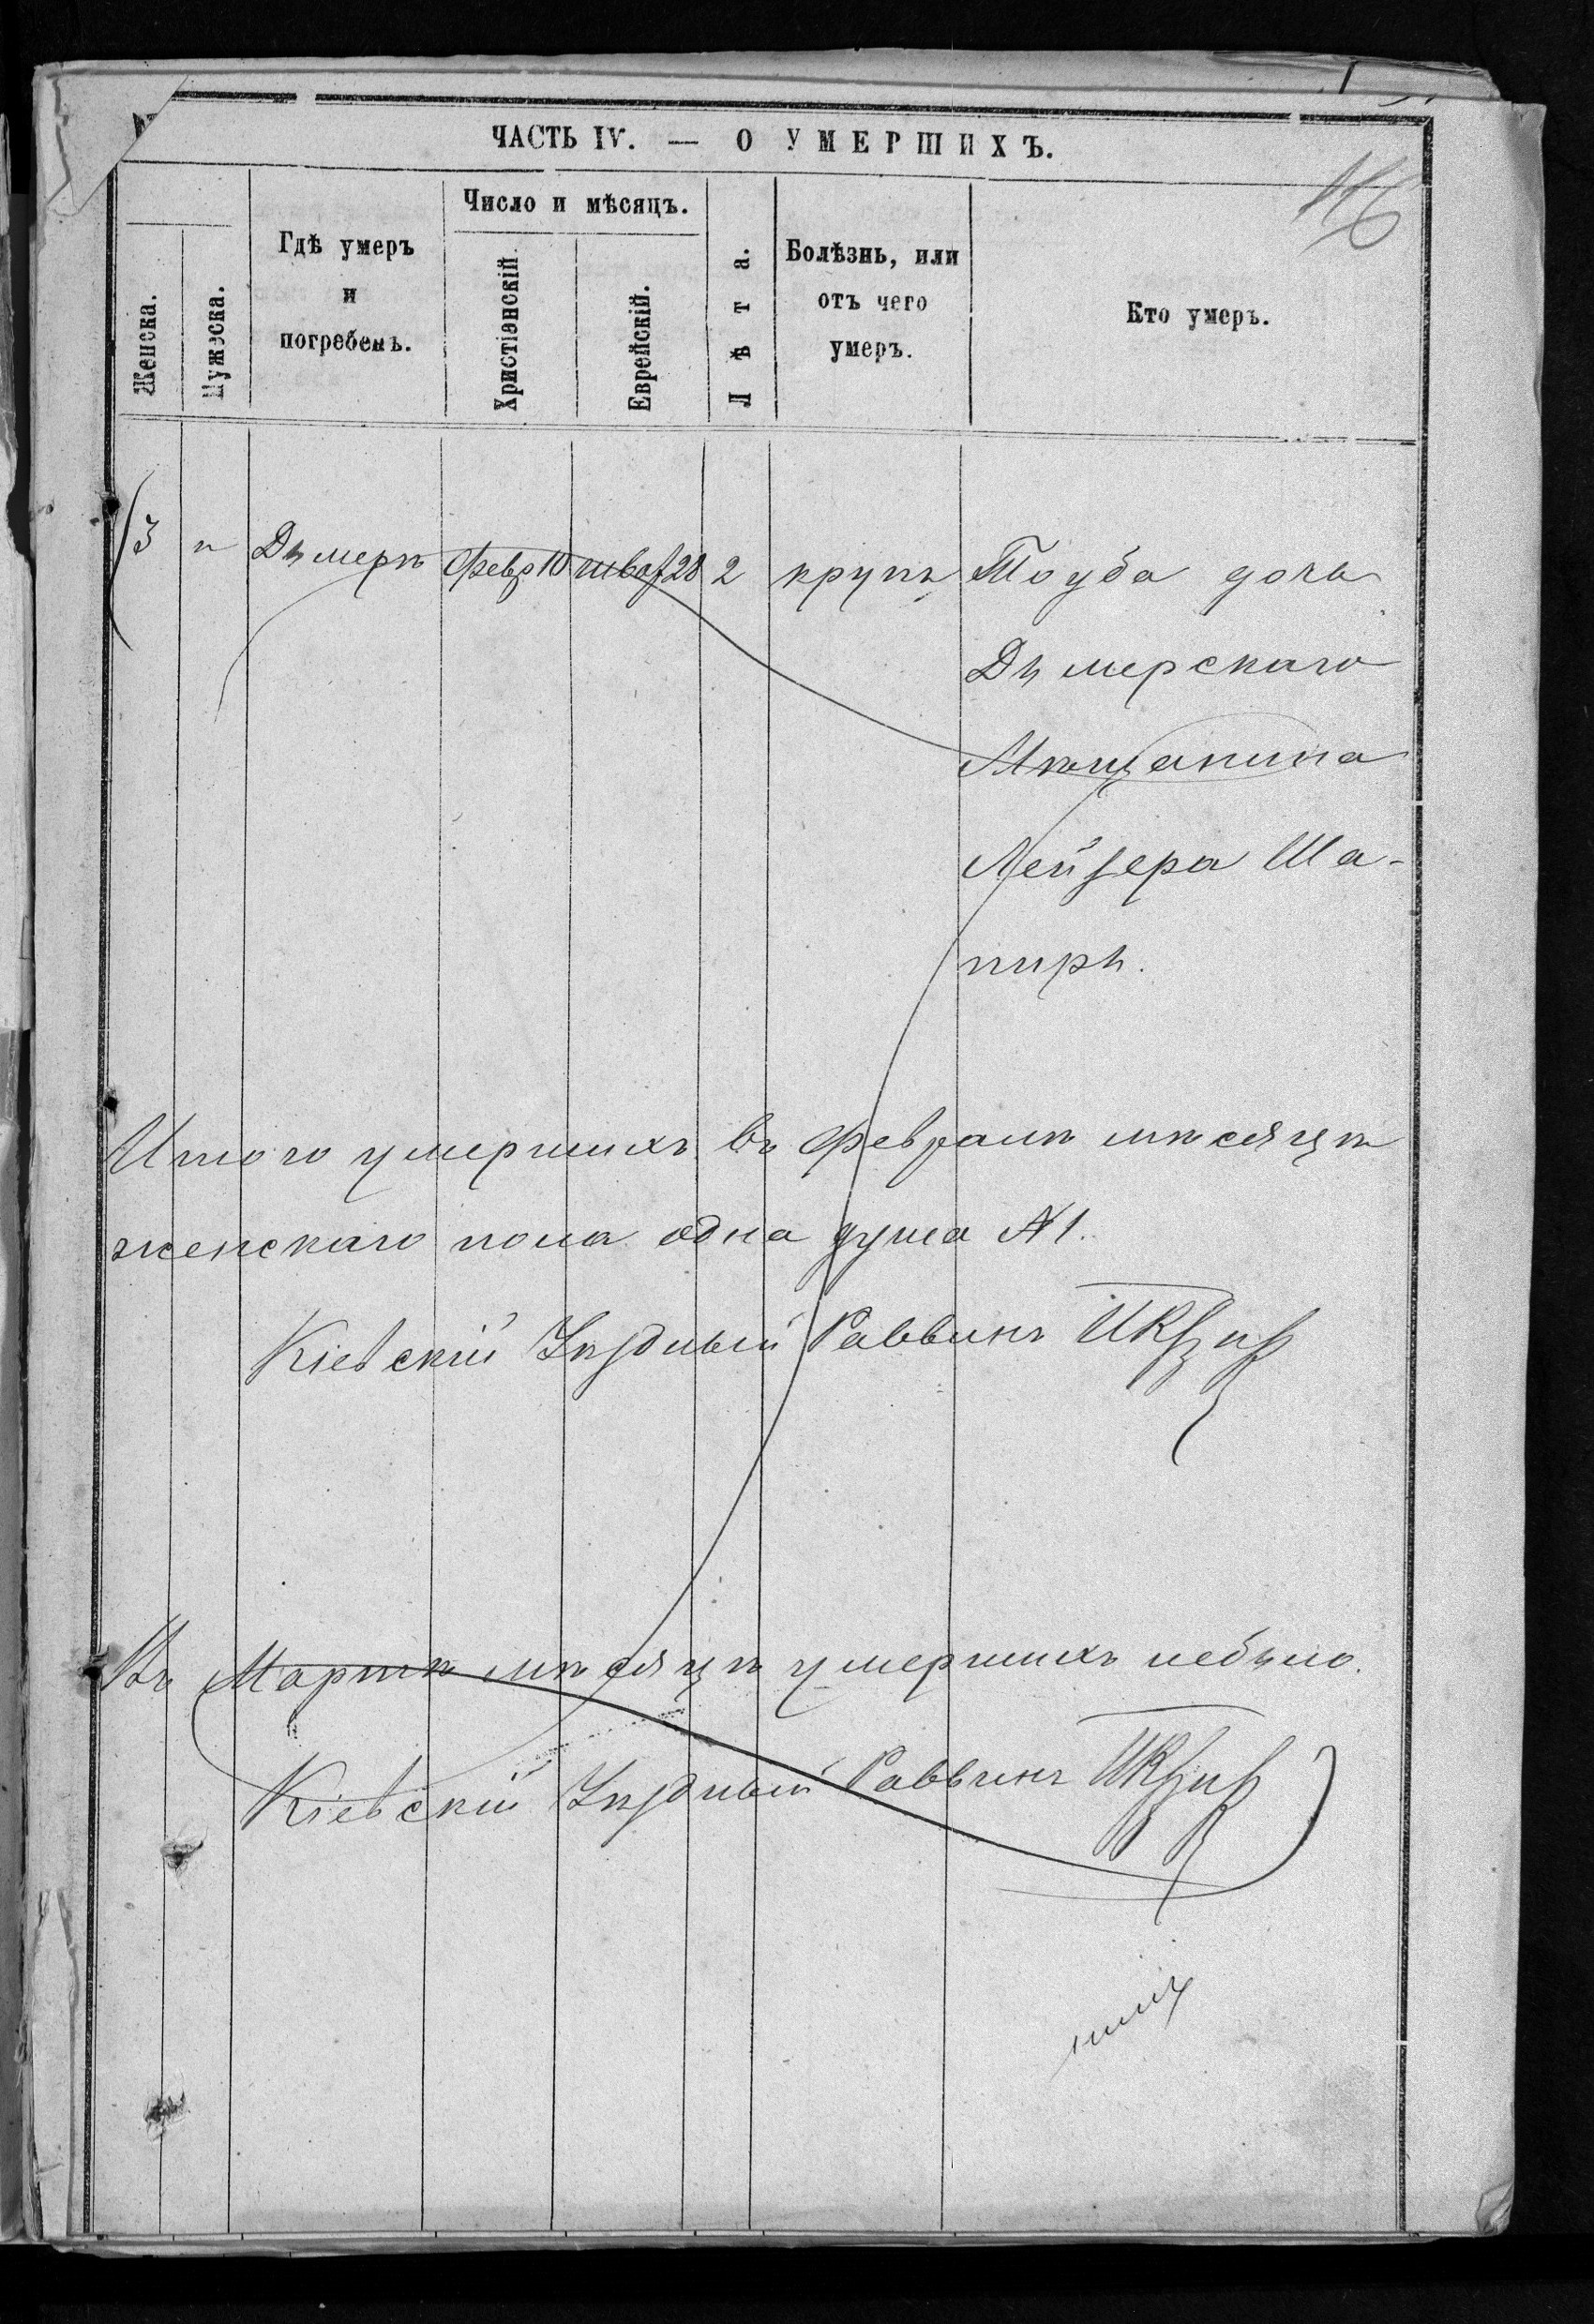 ЧАСТЬ IV. — О УМЕРШИХЪ.
116
Женска.
Мужеска.
Гдѣ умеръ
и
погребенъ.
Число и мѣсяцъ.
Христіанскій.
Еврейскій.
Лѣта.
Болѣзнь, или
отъ чего
умеръ.
Кто умеръ.
3 " Дымеръ Февр 10 28 2 крупъ Тоуба дочь
Дымерскаго
Мѣщанина
Лейзера Ша-
пиры.
Итого умершихъ въ Февралѣ мѣсяцѣ
женскаго пола одна душа № 1.
Кіевскій Уѣздный Раввинъ
Въ Мартѣ мѣсяцѣ умершихъ небыло.
Кіевскій Уѣздный Раввинъ